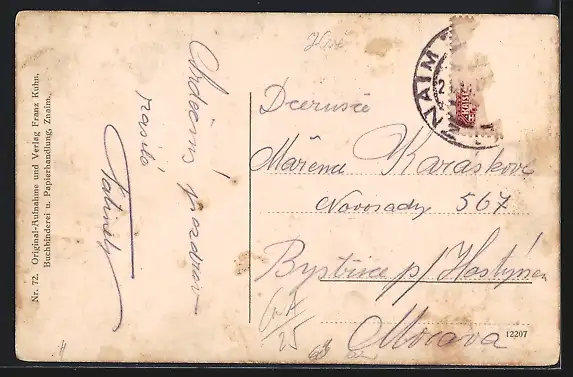 Nr. 72. Original-Aufnahme und Verlag Franz Kuhn,
Buchbinderei u. Papierhandlung, Znaim.
Srdečný pozdrav
zasílá
ZNAIM
Dcerušce
Mařence Karaskové
Novosady 567
Bystřice p/ Hostýnem
Morava
25
12207